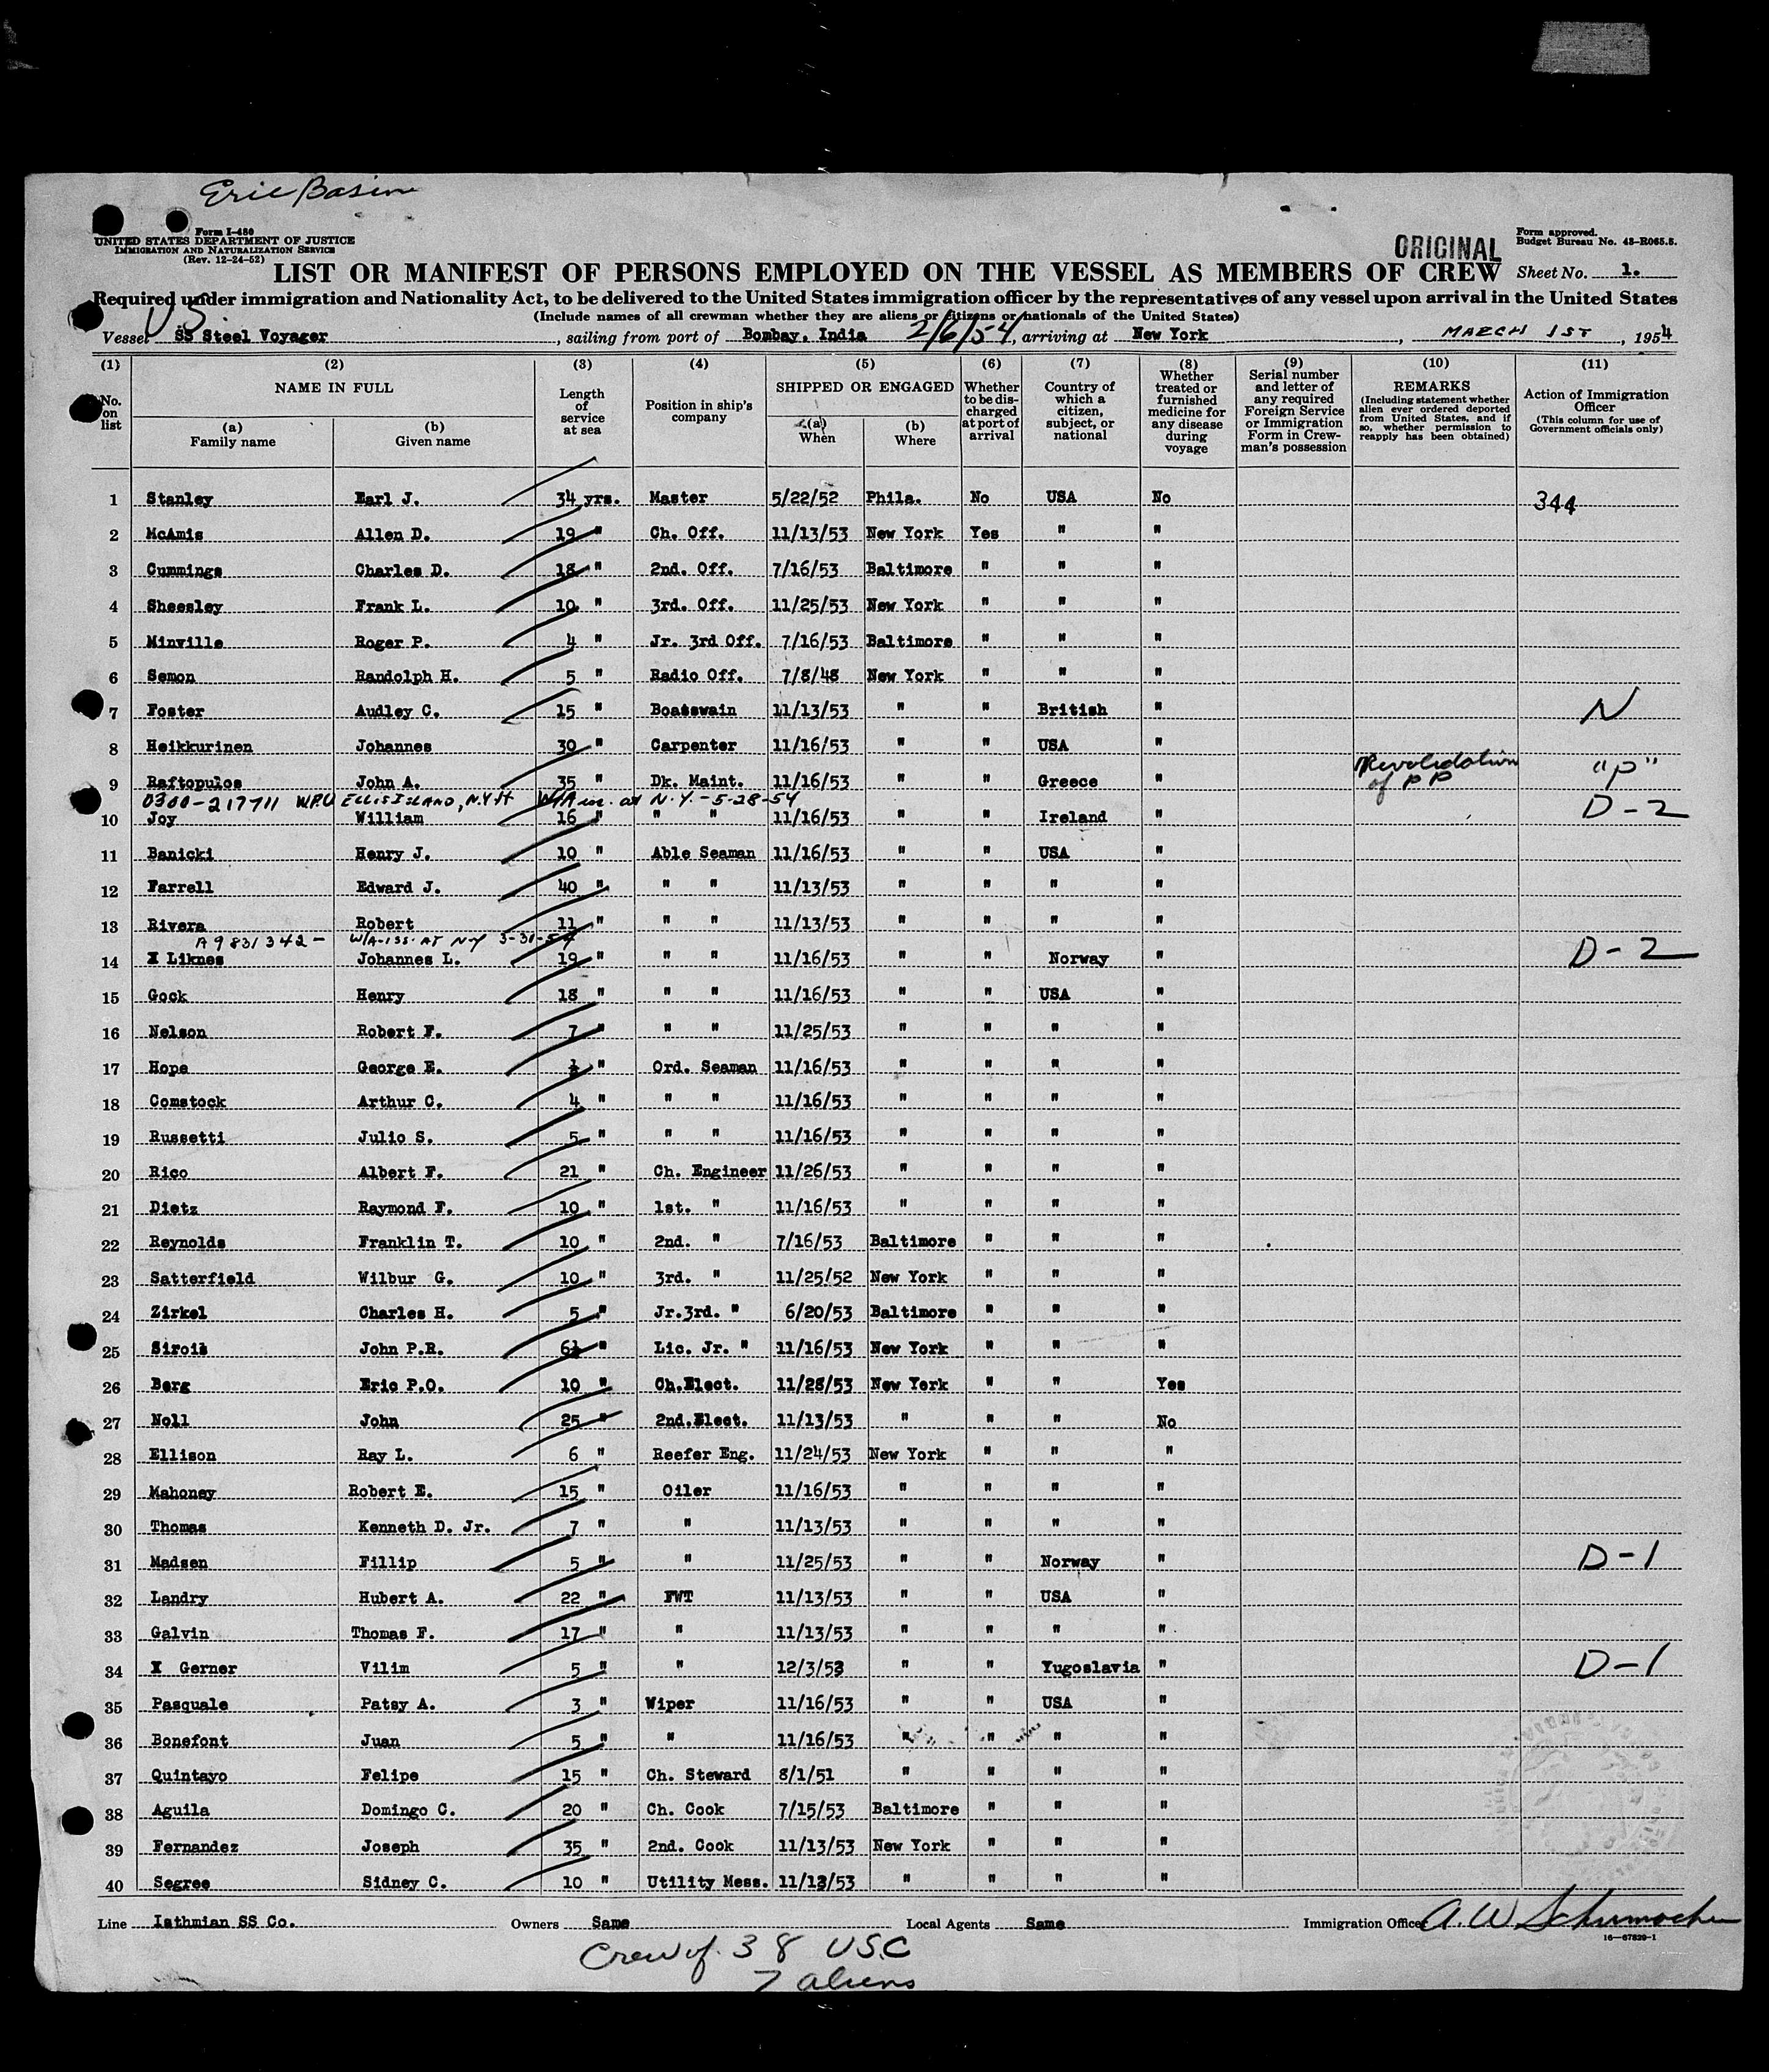 Eric Basin
Form I-480
UNITED STATES DEPARTMENT OF JUSTICE
IMMIGRATION AND NATURALIZATION SERVICE
(Rev. 12-24-52)
ORIGINAL
Form approved.
Budget Bureau No. 43-R065.5.
LIST OR MANIFEST OF PERSONS EMPLOYED ON THE VESSEL AS MEMBERS OF CREW Sheet No. 1.
Required under immigration and Nationality Act, to be delivered to the United States immigration officer by the representatives of any vessel upon arrival in the United States
(Include names of all crewman whether they are aliens or citizens or nationals of the United States)
US
Vessel SS Steel Voyager, sailing from port of Bombay, India 2/6/54, arriving at New York, MARCH 1ST, 1954
(1) (2) (3) (4) (5) (6) (7) (8) (9) (10) (11)
No. on list
NAME IN FULL
(a) Family name
(b) Given name
Length of service at sea
Position in ship's company
SHIPPED OR ENGAGED
(a) When
(b) Where
Whether to be discharged at port of arrival
Country of which a citizen, subject, or national
Whether treated or furnished medicine for any disease during voyage
Serial number and letter of any required Foreign Service or Immigration Form in Crewman's possession
REMARKS
(Including statement whether alien ever ordered deported from United States, and if so, whether permission to reapply has been obtained)
Action of Immigration Officer
(This column for use of Government officials only)
1 Stanley Earl J. 34 yrs. Master 5/22/52 Phila. No USA No 344
2 McAmis Allen D. 19 " Ch. Off. 11/13/53 New York Yes " "
3 Cummings Charles D. 18 " 2nd. Off. 7/16/53 Baltimore " " "
4 Sheesley Frank L. 10 " 3rd. Off. 11/25/53 New York " " "
5 Minville Roger P. 4 " Jr. 3rd Off. 7/16/53 Baltimore " " "
6 Semon Randolph H. 5 " Radio Off. 7/8/48 New York " " "
7 Foster Audley C. 15 " Boatswain 11/13/53 " " British " N
8 Heikkurinen Johannes 30 " Carpenter 11/16/53 " " USA "
9 Raftopulos John A. 35 " Dk. Maint. 11/16/53 " " Greece " Revalidation of PP "P"
0300-217711 W.P.U ELLIS ISLAND, N.Y.H W/A iss. at N.Y. - 5-28-54
10 Joy William 16 " " " 11/16/53 " " Ireland " D-2
11 Banicki Henry J. 10 " Able Seaman 11/16/53 " " USA "
12 Farrell Edward J. 40 " " " 11/13/53 " " " "
13 Rivera Robert 11 " " " 11/13/53 " " " "
A9831342- W/A-ISS. AT NY 3-31-54
14 X Liknes Johannes L. 19 " " " 11/16/53 " " Norway " D-2
15 Gock Henry 18 " " " 11/16/53 " " USA "
16 Nelson Robert F. 7 " " " 11/25/53 " " " "
17 Hope George E. ½ " Ord. Seaman 11/16/53 " " " "
18 Comstock Arthur C. 4 " " " 11/16/53 " " " "
19 Russetti Julio S. 5 " " " 11/16/53 " " " "
20 Rico Albert F. 21 " Ch. Engineer 11/26/53 " " " "
21 Dietz Raymond F. 10 " 1st. " 11/16/53 " " " "
22 Reynolds Franklin T. 10 " 2nd. " 7/16/53 Baltimore " " "
23 Satterfield Wilbur G. 10 " 3rd. " 11/25/52 New York " " "
24 Zirkel Charles H. 5 " Jr.3rd. " 6/20/53 Baltimore " " "
25 Sirois John P.R. 6½ " Lic. Jr. " 11/16/53 New York " " "
26 Berg Eric P.O. 10 " Ch.Elect. 11/28/53 New York " " Yes
27 Noll John 25 " 2nd.Elect. 11/13/53 " " " No
28 Ellison Ray L. 6 " Reefer Eng. 11/24/53 New York " " "
29 Mahoney Robert E. 15 " Oiler 11/16/53 " " " "
30 Thomas Kenneth D. Jr. 7 " " 11/13/53 " " " "
31 Madsen Fillip 5 " " 11/25/53 " " Norway " D-1
32 Landry Hubert A. 22 " FWT 11/13/53 " " USA "
33 Galvin Thomas F. 17 " " 11/13/53 " " " "
34 X Gerner Vilim 5 " " 12/3/53 " " Yugoslavia " D-1
35 Pasquale Patsy A. 3 " Wiper 11/16/53 " " USA "
36 Bonefont Juan 5 " " 11/16/53 " " " "
37 Quintayo Felipe 15 " Ch. Steward 8/1/51 " " " "
38 Aguila Domingo C. 20 " Ch. Cook 7/15/53 Baltimore " " "
39 Fernandez Joseph 35 " 2nd. Cook 11/13/53 New York " " "
40 Segree Sidney C. 10 " Utility Mess. 11/13/53 " " " "
Line Isthmian SS Co. Owners Same Local Agents Same Immigration Officer A. W. Schumacher
16-67829-1
Crew of 38 USC
7 aliens